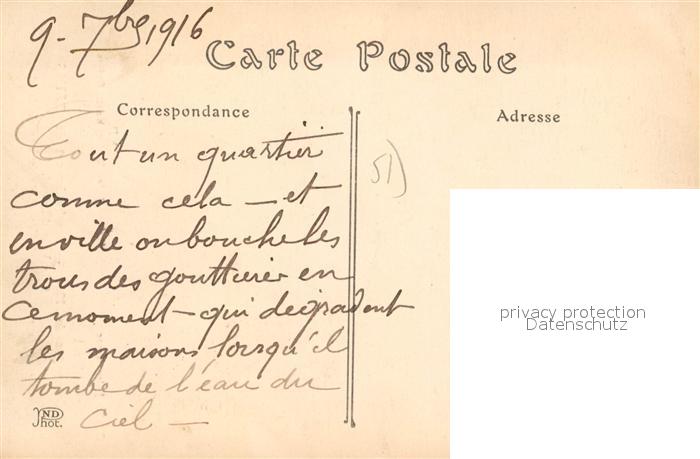 9 - 7bre 1916
Carte Postale
Correspondance
Adresse
Tout un quartier
comme cela - et
en ville on bouche les
trous des gouttieres en
ce moment - qui degradent
les maisons lorsqu'il
tombe de l'eau du
ciel -
51)
ND
Phot.
privacy protection
Datenschutz